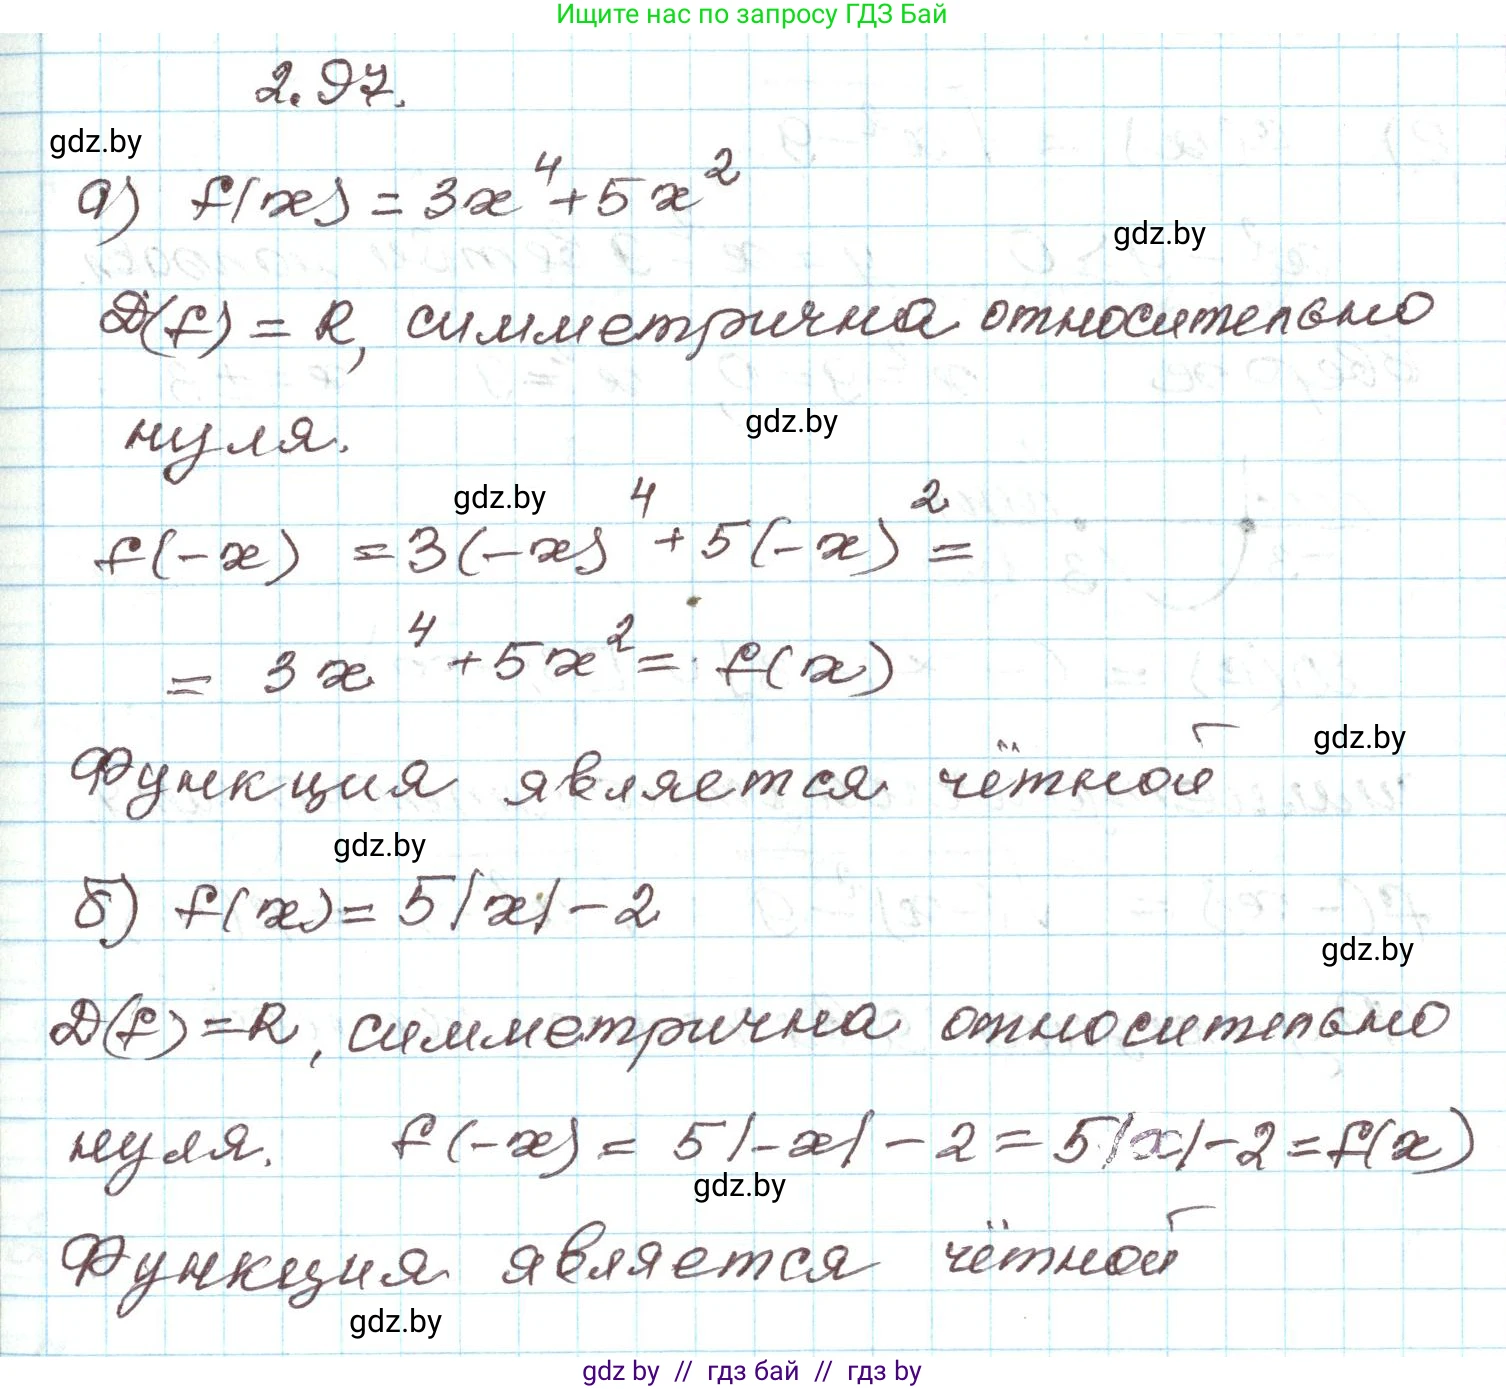 Ищите нас по запросу ГДЗ Бай
2.97.
gdz.by
а) f(x) = 3x⁴ + 5x²
gdz.by
D(f) = R, симметрична относительно
нуля.
gdz.by
gdz.by
f(-x) = 3(-x)⁴ + 5(-x)² =
= 3x⁴ + 5x² = f(x)
Функция является чётной
gdz.by
gdz.by
б) f(x) = 5|x| - 2
gdz.by
D(f) = R, симметрична относительно
нуля. f(-x) = 5|-x| - 2 = 5|x| - 2 = f(x)
gdz.by
Функция является чётной
gdz.by
gdz by // гдз бай // гдз by